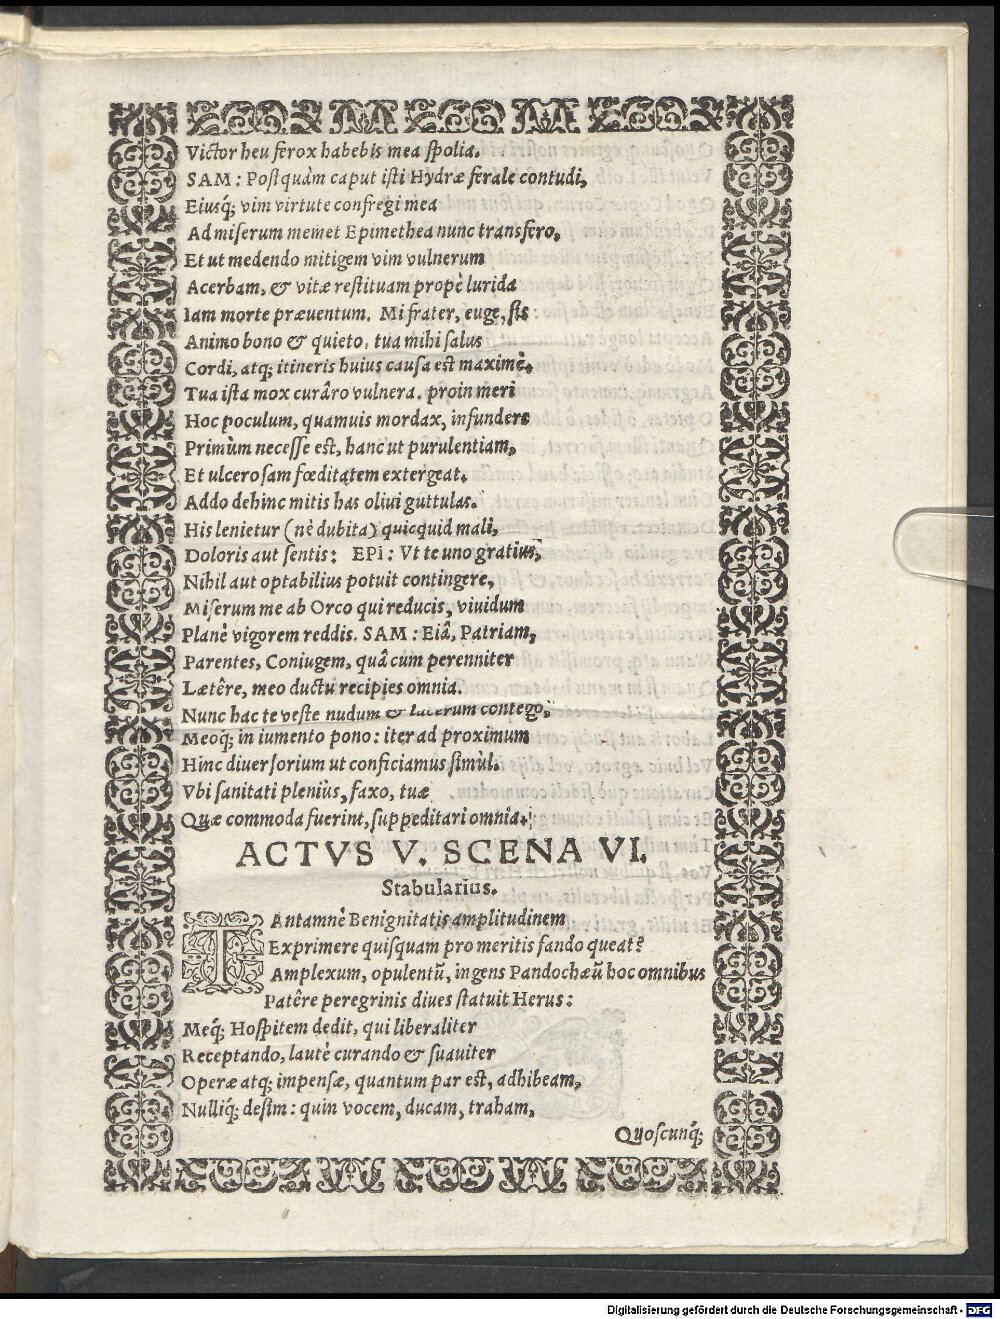 Victor heu ferox habebis mea spolia.
SAM: Postquàm caput isti Hydræ ferale contudi,
Eiusq́; vim virtute confregi mea
Ad miserum memet Epimethea nunc transfero,
Et ut medendo mitigem vim vulnerum
Acerbam, & vitæ restituam propè lurida
Iam morte præuentum. Mi frater, euge, sis
Animo bono & quieto, tua mihi salus
Cordi, atq; itineris huius causa est maximè.
Tua ista mox curâro vulnera. proin meri
Hoc poculum, quamuis mordax, infundere
Primùm necesse est, hanc ut purulentiam,
Et ulcerosam fœditatem extergeat.
Addo dehinc mitis has oliui guttulas.
His lenietur (nè dubita) quicquid mali,
Doloris aut sentis: EPI: Vt te uno gratius,
Nihil aut optabilius potuit contingere,
Miserum me ab Orco qui reducis, viuidum
Planè vigorem reddis. SAM: Eiâ, Patriam,
Parentes, Coniugem, quâ cum perenniter
Lætêre, meo ductu recipies omnia.
Nunc hac te veste nudum & lacerum contego,
Meoq; in iumento pono: iter ad proximum
Hinc diuersorium ut conficiamus simùl.
Vbi sanitati pleniùs, faxo, tuæ
Quæ commoda fuerint, suppeditari omnia.
ACTVS V. SCENA VI.
Stabularius.
TAntamnè Benignitatis amplitudinem
Exprimere quisquam pro meritis fando queat?
Amplexum, opulentū, ingens Pandochæū hoc omnibus
Patêre peregrinis diues statuit Herus:
Meq́; Hospitem dedit, qui liberaliter
Receptando, lautè curando & suauiter
Operæ atq; impensæ, quantum par est, adhibeam,
Nulliq́; desim: quin vocem, ducam, traham,
Quoscunq́;
Digitalisierung gefördert durch die Deutsche Forschungsgemeinschaft - DFG